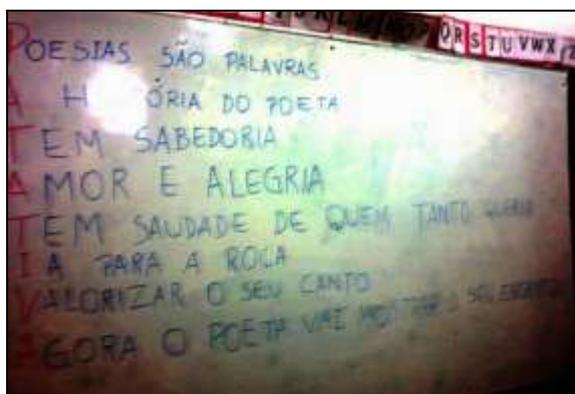 Q R S T U V W X
POESIAS SÃO PALAVRAS
A H ÓRIA DO POETA
TEM SABEDORIA
AMOR E ALEGRIA
TEM SAUDADE DE QUEM TANTO QUERIA
IA PARA A ROÇA
VALORIZAR O SEU CANTO
AGORA O POETA VAI MOSTRAR O SEU